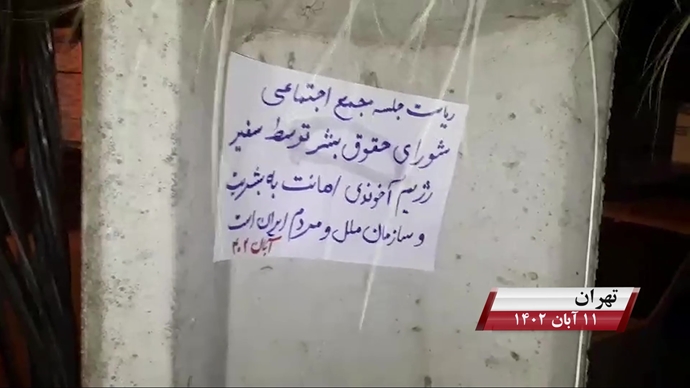 ریاست جلسه مجمع اجتماعی
شورای حقوق بشر توسط سفیر
رژیم آخوندی اهانت به بشریت
و سازمان ملل و مردم ایران است
آبان ۴۰۲
تهران
۱۱ آبان ۱۴۰۲